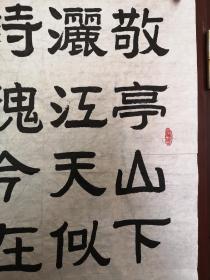 敬亭山下
灑江天似
诗瑰今在